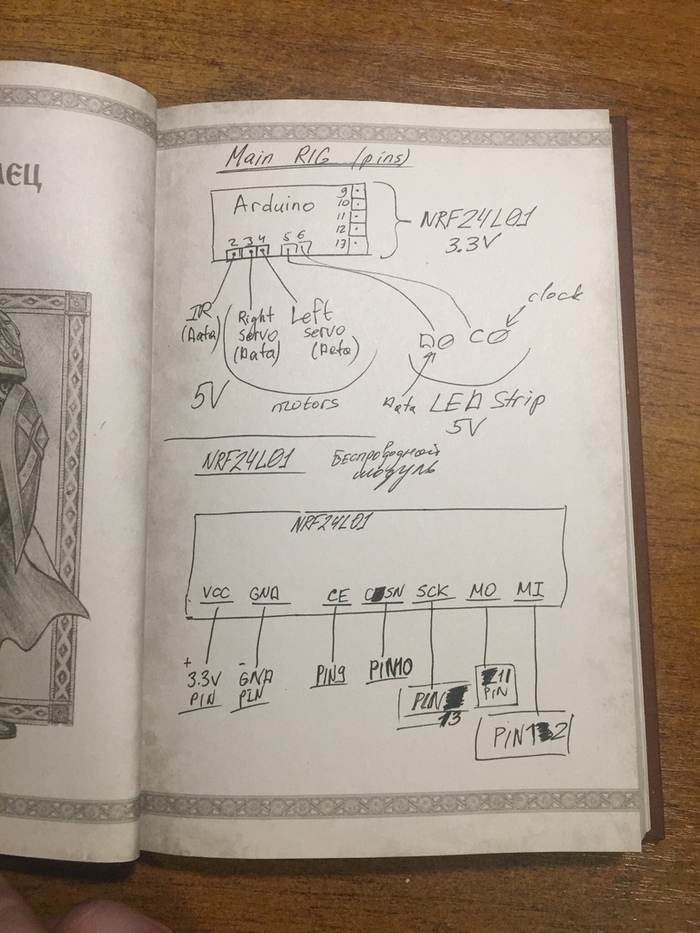 ЛЕЦ
Main RIG (pins)
Arduino
9
10
11
12
13
2 3 4 5 6
NRF24L01
3.3V
IR
(Data)
Right
servo
(Data)
Left
servo
(Data)
5V
motors
D
C
clock
Data
LED Strip
5V
NRF24L01
Беспроводной
модуль
NRF24L01
VCC GND CE CSN SCK MO MI
+
3.3V
PIN
-
GND
PIN
PIN9
PIN10
PIN
13
11
PIN
PIN12